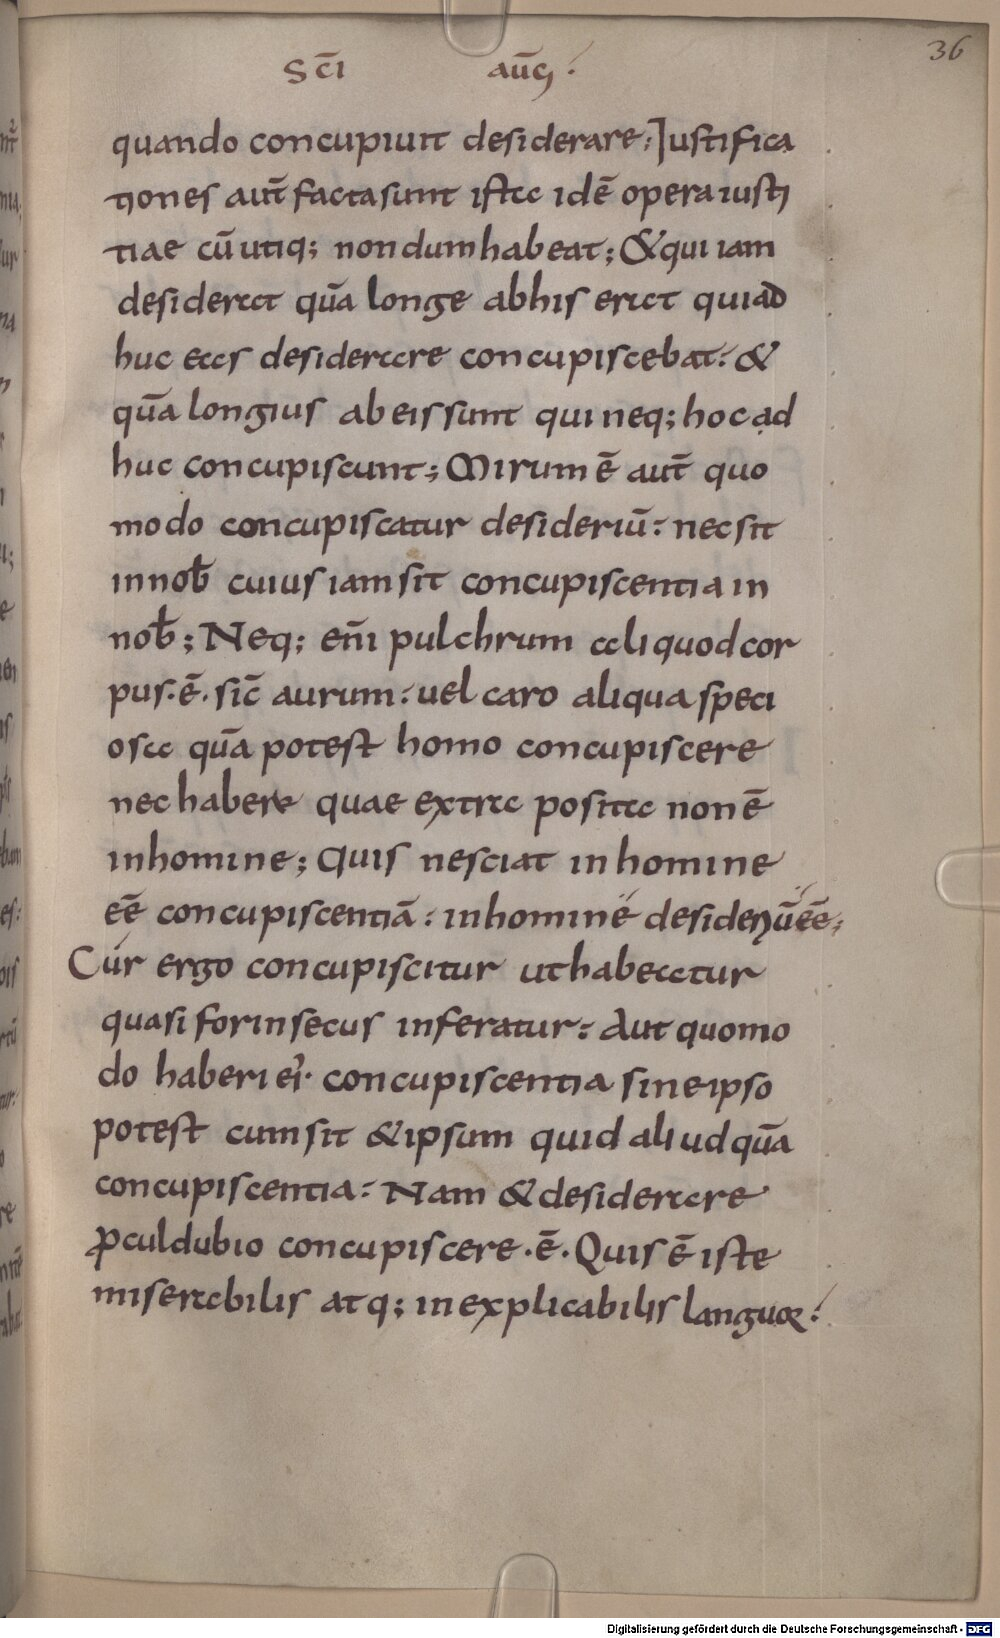 36
SC̄I AŪG·
quando concupiuit desiderare; Iustifica
tiones aut̄ facta sunt ista idē opera iusti
tiae cū utiq; nondum habeat; & qui iam
desiderat quā longe abhis erat quiad
huc eas desiderare concupiscebat: &
quā longius ab eis sunt qui neq; hoc ad
huc concupiscunt; Mirum ē aut̄ quo
modo concupiscatur desideriū: nec sit
in nob̄ cuius iam sit concupiscentia in
nob̄; Neq; eni̅ pulchrum aliquod cor
pus·ē· sic̄ aurum: uel caro aliqua speci
osa quā potest homo concupiscere
nec habere quae extra posita non ē
in homine; Quis nesciat in homine
eē concupiscentiā: in homine desideriū eē;
Cur ergo concupiscitur ut habeatur
quasi forinsecus inferatur: Aut quomo
do haberi ei· concupiscentia sine ipso
potest cum sit & ipsum quid aliud quā
concupiscentia: Nam & desiderare
ꝓculdubio concupiscere·ē· Quis ē iste
miserabilis atq; inexplicabilis languor:
Digitalisierung gefördert durch die Deutsche Forschungsgemeinschaft - DFG